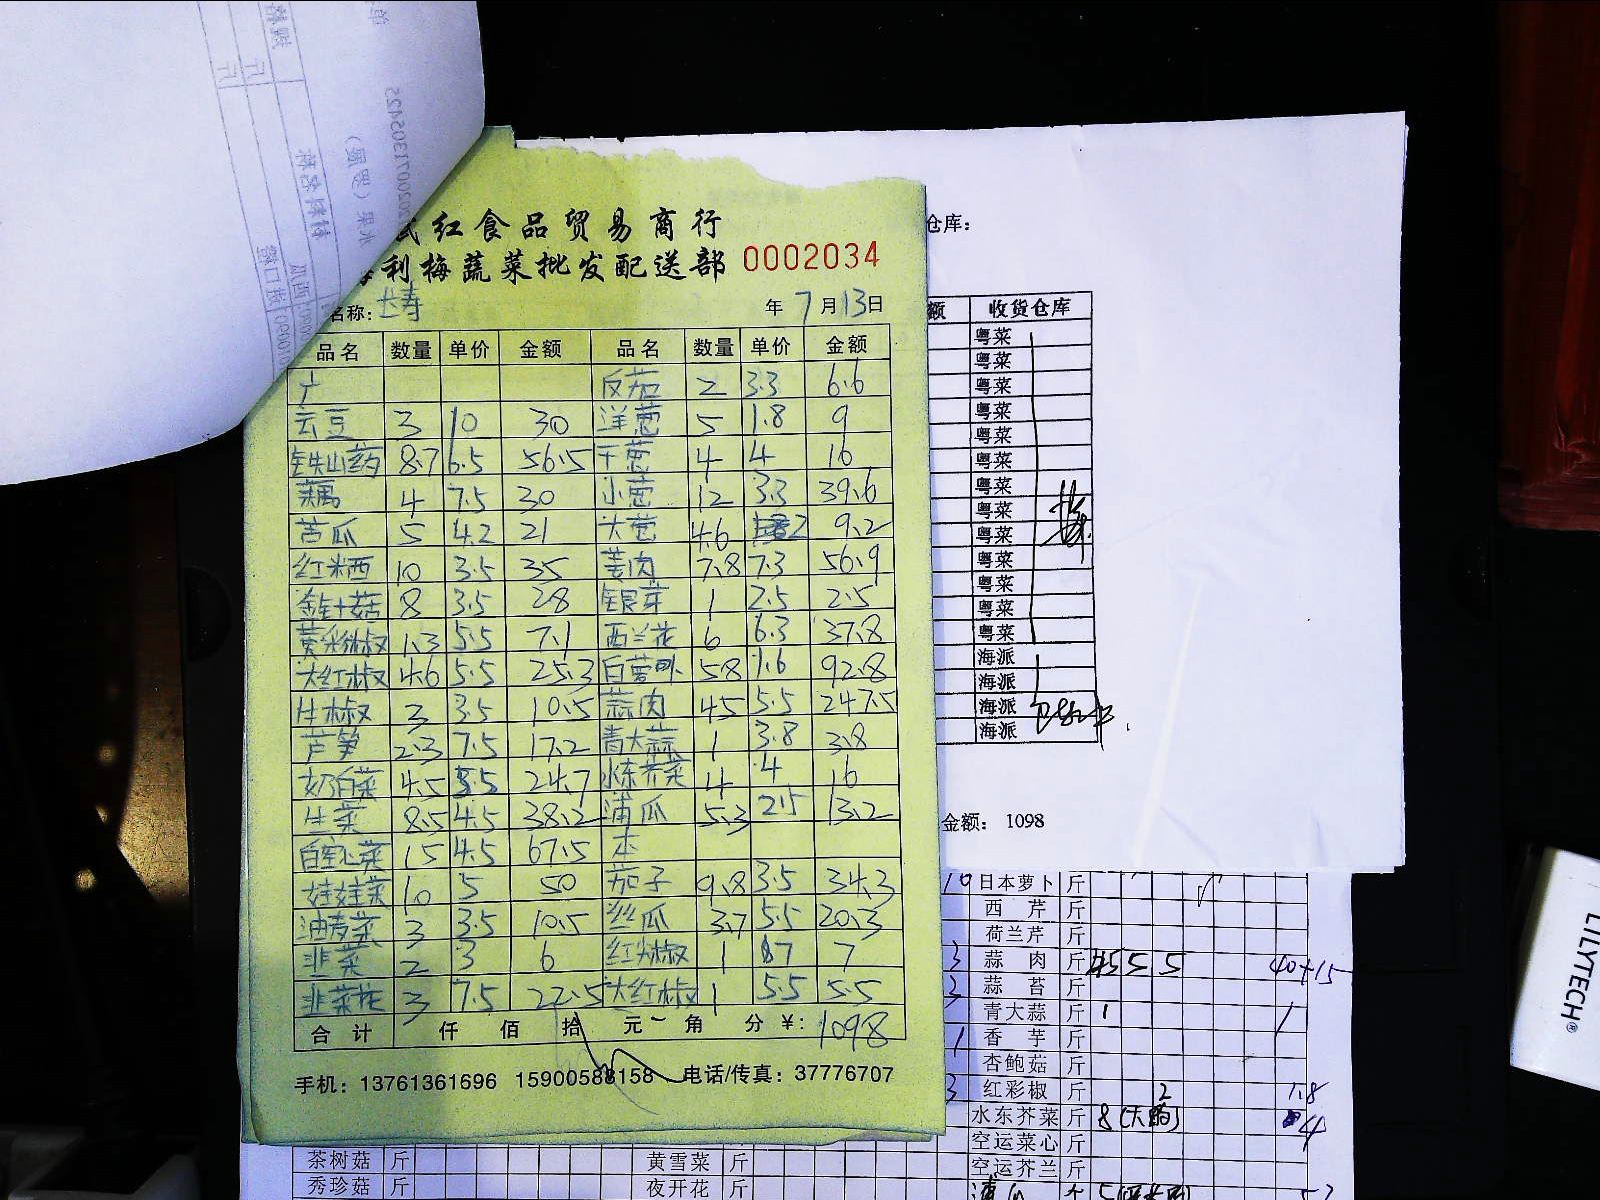 红食品贸易商行
利梅蔬菜批发配送部 0002034
名称: 长寿 年 7 月 13 日
品名 数量 单价 金额 品名 数量 单价 金额
广 皮茄 2 3.3 6.6
云豆 3 10 30 洋葱 5 1.8 9
铁山药 8.7 6.5 56.5 干葱 4 4 16
藕 4 7.5 30 小葱 12 3.3 39.6
苦瓜 5 4.2 21 大葱 4.6 2 9.2
红米西 10 3.5 35 姜肉 7.8 7.3 56.9
金针菇 8 3.5 28 银芽 1 2.5 2.5
黄彩椒 1.3 5.5 7.1 西兰花 6 6.3 37.8
大红椒 4.6 5.5 25.3 白萝卜 58 1.6 92.8
牛椒 3 3.5 10.5 蒜肉 45 5.5 247.5
芦笋 2.3 7.5 17.2 青大蒜 1 3.8 3.8
奶白菜 4.5 5.5 24.7 水东芥菜 4 4 16
生菜 8.5 4.5 38.2 浦瓜 5.3 2.5 13.2
白空心菜 15 4.5 67.5 本
娃娃菜 10 5 50 茄子 9.8 3.5 34.3
油麦菜 3 3.5 10.5 丝瓜 3.7 5.5 20.3
韭菜 2 3 6 红尖椒 1 7 7
韭菜花 3 7.5 22.5 大红椒 1 5.5 5.5
合计 仟 佰 拾 元 角 分 ¥: 1098
手机: 13761361696 15900588158 电话/传真: 37776707
仓库:
额 收货仓库
粤菜
粤菜
粤菜
粤菜
粤菜
粤菜
粤菜
粤菜
粤菜
粤菜
粤菜
粤菜
粤菜
海派
海派
海派
海派
金额: 1098
10 日本萝卜 斤
西芹 斤
荷兰芹 斤
3 蒜肉 斤 45 5 5 40+15
3 蒜苔 斤
青大蒜 斤 1 1
1 香芋 斤
杏鲍菇 斤
3 红彩椒 斤 2 1.8
水东芥菜 斤 8 4
空运菜心 斤
茶树菇 斤 黄雪菜 斤 空运芥兰 斤
秀珍菇 斤 夜开花 斤
LILYTECH®